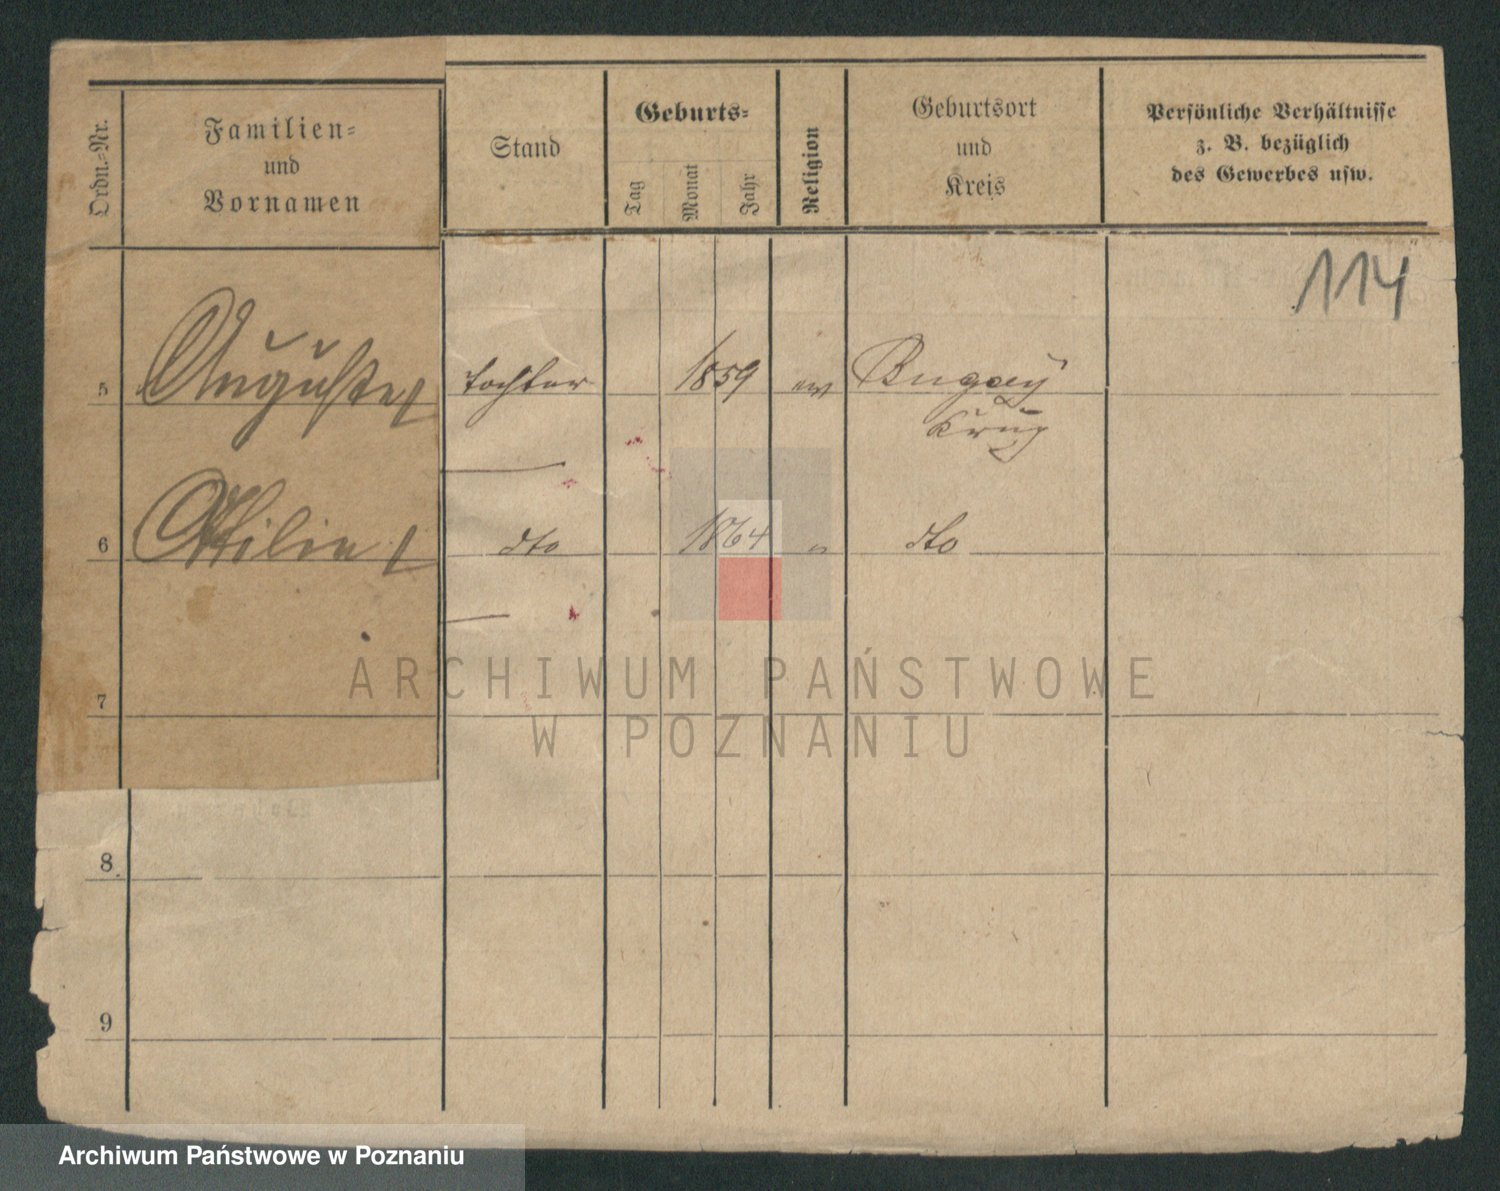 Ordn.=Nr.
Familien=
und
Vornamen
Stand
Geburts=
Tag
Monat
Jahr
Religion
Geburtsort
und
Kreis
Persönliche Verhältnisse
z. B. bezüglich
des Gewerbes usw.
114
5 Auguste Tochter 1859 ev Bugay
Krug
6 Ottilie dto 1864 " dto
7
8
9
ARCHIWUM PAŃSTWOWE
W POZNANIU
Archiwum Państwowe w Poznaniu